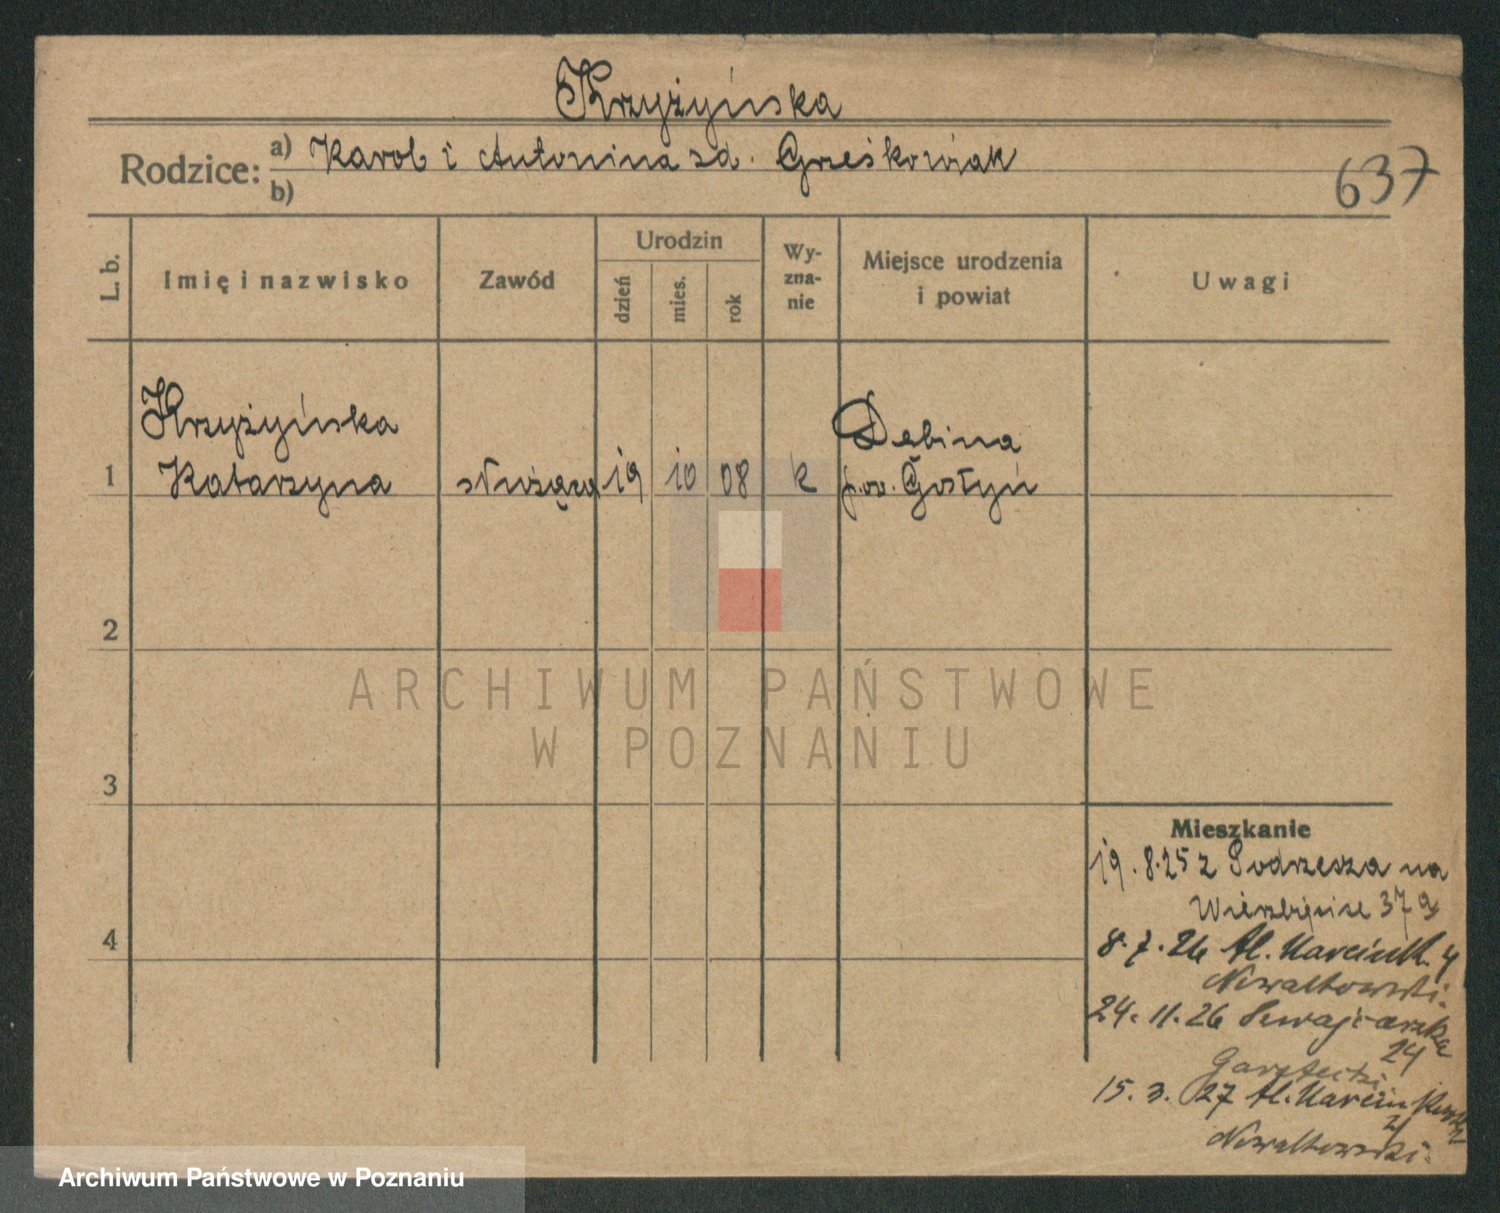 Krzyżyńska
Rodzice: a) Karol i Antonina zd. Grześkowiak
b)
637
L. b.
Imię i nazwisko
Zawód
Urodzin
dzień
mies.
rok
Wy-
zna-
nie
Miejsce urodzenia
i powiat
Uwagi
Krzyżyńska
Dębina
1 Katarzyna służąca 19 10 08 k pow. Gostyń
2
3
4
ARCHIWUM PAŃSTWOWE
W POZNANIU
Mieszkanie
19.8.25 z Podrzecza na
Wierzbięcice 37a
8.7.26 Al. Marcink. 4
Nowakowski.
24.11.26 Szwajcarska
24
15.3.27 Al. Marcinkowsk.
Nowakowski.
Archiwum Państwowe w Poznaniu